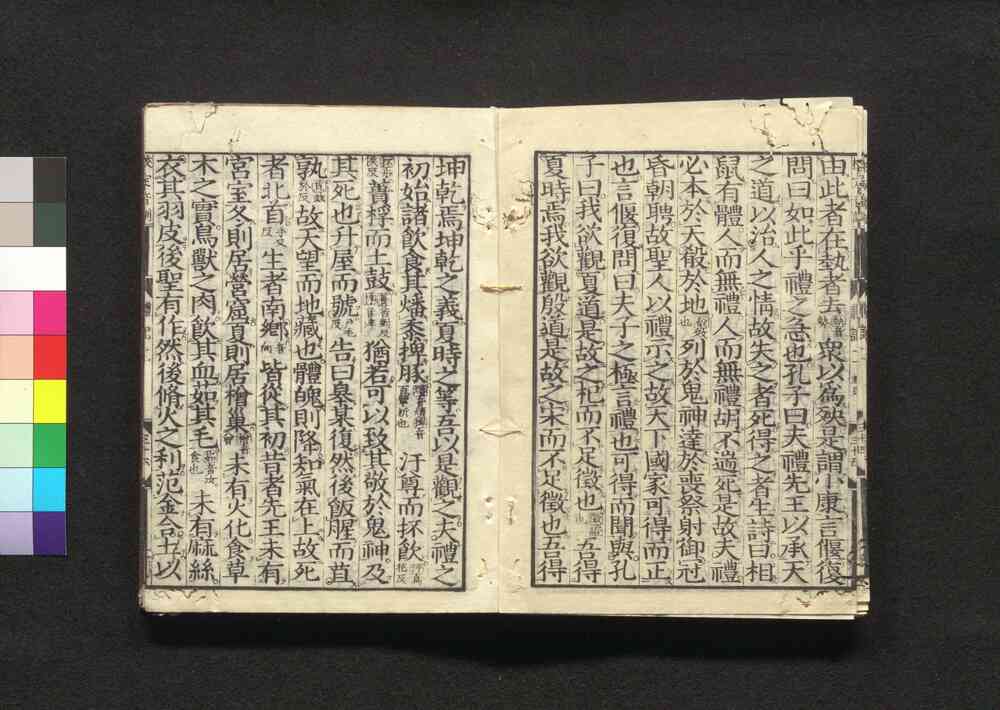 由此者在埶者去衆以爲殃是謂小康言偃復
問曰如此乎禮之急也孔子曰夫禮先王以承天
之道以治人之情故失之者死得之者生詩曰相
鼠有體人而無禮人而無禮胡不遄死是故夫禮
必本於天殽於地列於鬼神達於喪祭射御冠
昏朝聘故聖人以禮示之故天下國家可得而正
也言偃復問曰夫子之極言禮也可得而聞與孔
子曰我欲觀夏道是故之杞而不足徵也吾得
夏時焉我欲觀殷道是故之宋而不足徵也吾得
坤乾焉坤乾之義夏時之等吾以是觀之夫禮之
初始諸飲食其燔黍捭豚汙尊而抔飲
蕢桴而土鼓猶若可以致其敬於鬼神及
其死也升屋而號告曰皋某復然後飯腥而苴
孰故天望而地藏也體魄則降知氣在上故死
者北首生者南鄉皆從其初昔者先王未有
宮室冬則居營窟夏則居橧巢未有火化食草
木之實鳥獸之肉飲其血茹其毛未有麻絲
衣其羽皮後聖有作然後脩火之利范金合土以